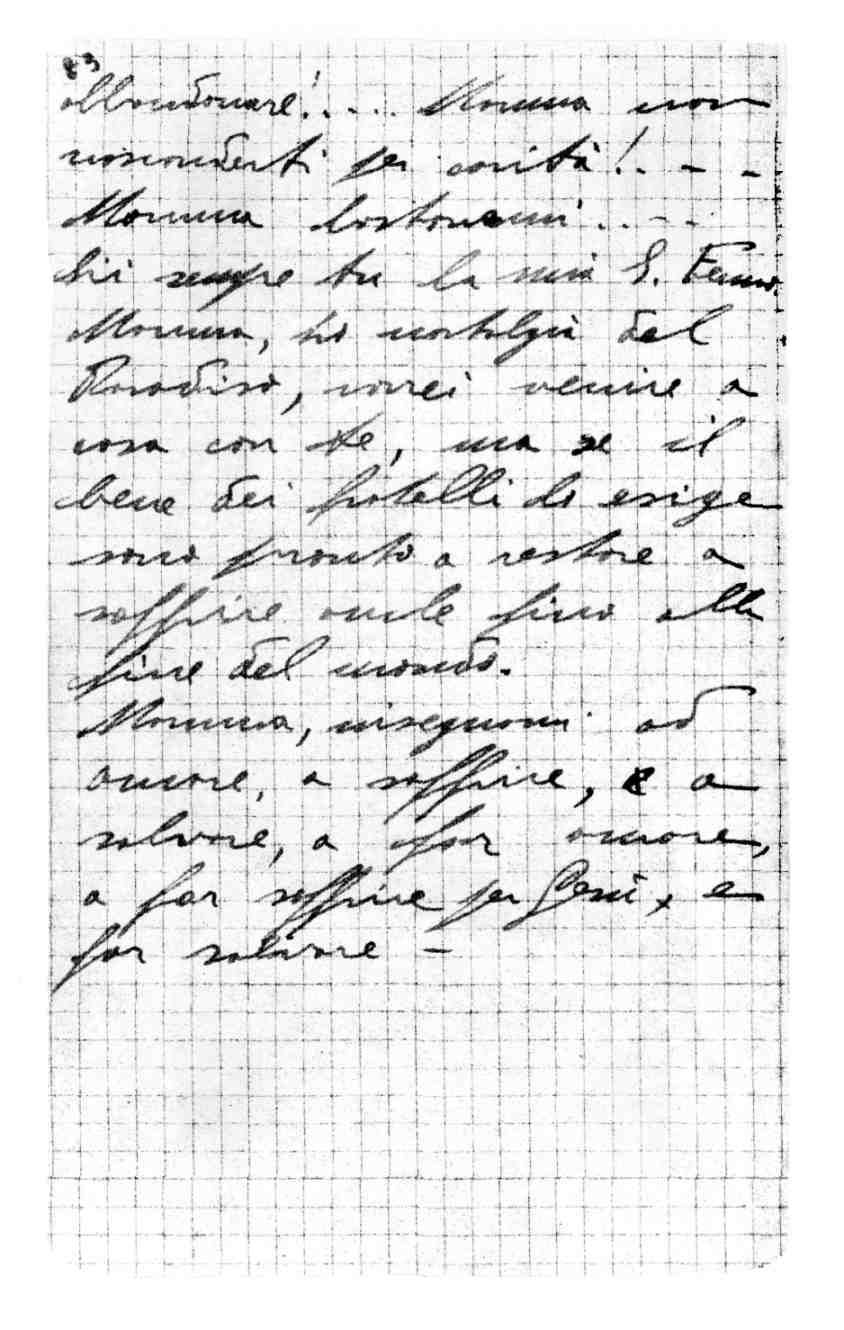 83
abbandonare!.... Mamma non
nasconderti per carità!. - -
Mamma bastonami..--
Sii sempre tu la mia S.
Mamma, ho nostalgia del
Paradiso, vorrei venire a
casa con te, ma se il
bene dei fratelli lo esige
sono pronto a restare a
soffrire anche fino alla
fine del mondo.
Mamma, insegnami ad
amare, a soffrire, e a
salvare, a far amare,
a far soffrire per Gesù, e
far salvare -